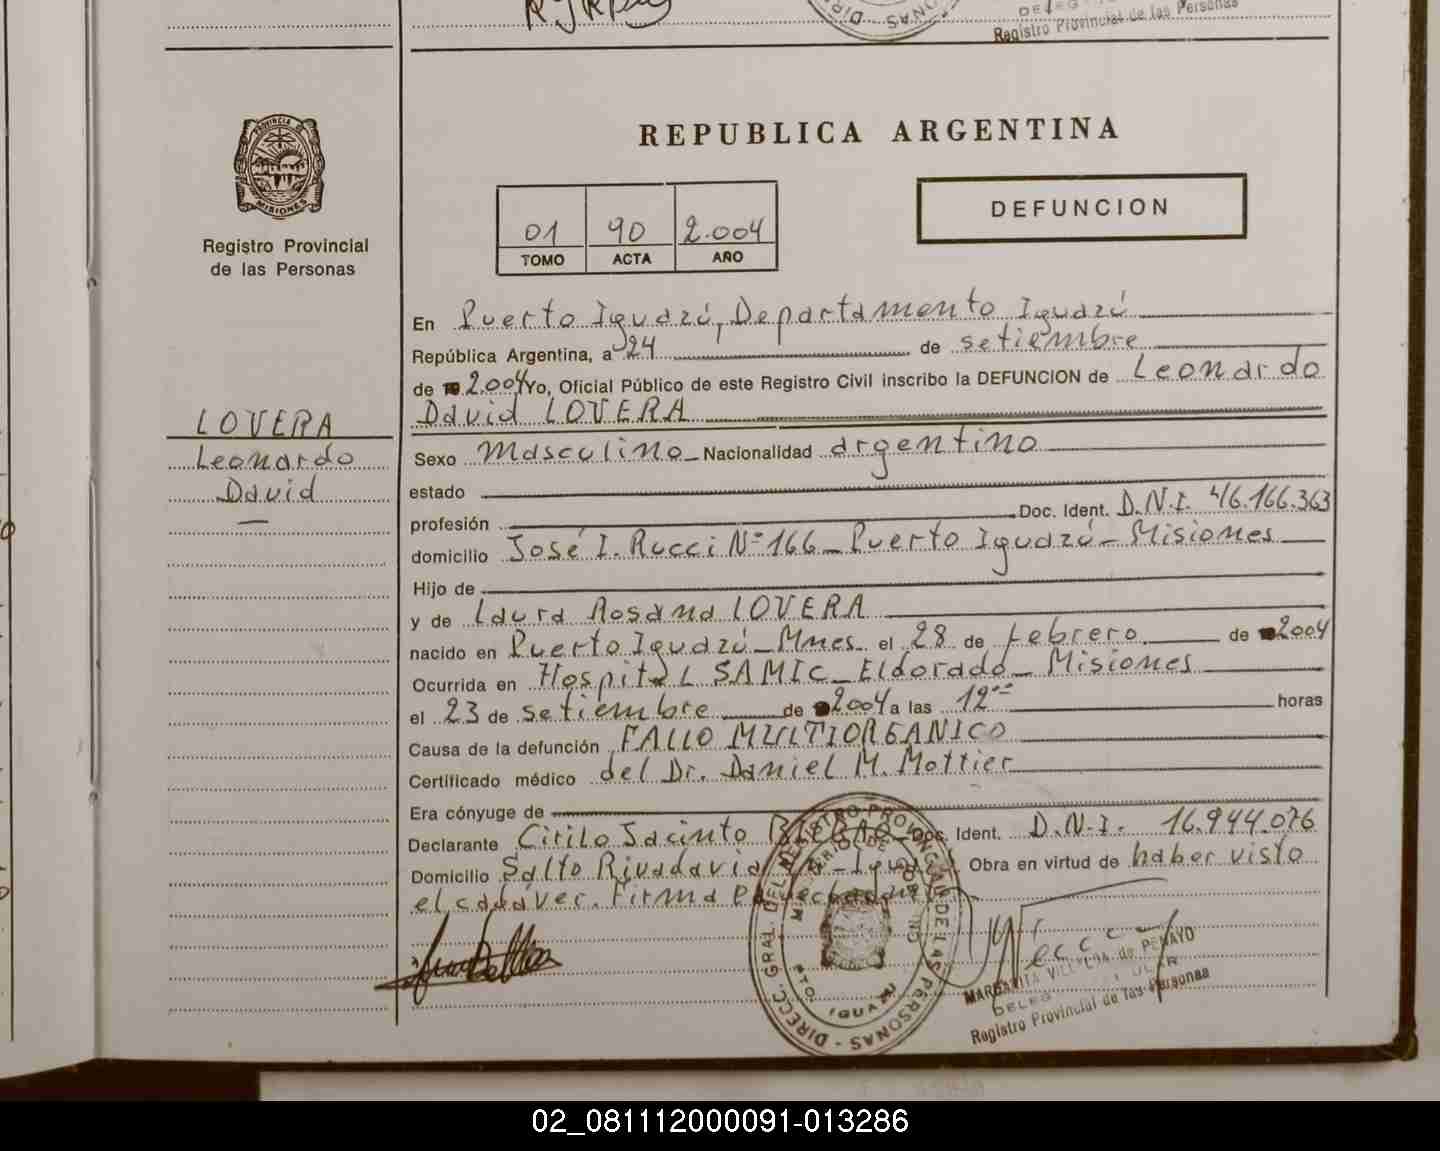 Registro Provincial de las Personas
PROVINCIA DE
MISIONES
Registro Provincial
de las Personas
REPUBLICA ARGENTINA
01 90 2.004
TOMO ACTA AÑO
DEFUNCION
En Puerto Iguazú, Departamento Iguazú
República Argentina, a 24 de setiembre
de 2.004 Yo, Oficial Público de este Registro Civil inscribo la DEFUNCION de Leonardo
David LOVERA
LOVERA
Leonardo
David
Sexo Masculino Nacionalidad argentino
estado
profesión Doc. Ident. D.N.I. 46.166.363
domicilio José I. Rucci Nº 166 - Puerto Iguazú - Misiones
Hijo de
y de Laura Rosana LOVERA
nacido en Puerto Iguazú - Mnes. el 28 de febrero de 2004
Ocurrida en Hospital SAMIC - Eldorado - Misiones
el 23 de setiembre de 2004 a las 12 horas
Causa de la defunción FALLO MULTIORGANICO
Certificado médico del Dr. Daniel M. Mottier
Era cónyuge de
Declarante Cirilo Jacinto Doc. Ident. D.N.I. 16.944.076
Domicilio Salto Rivadavia Obra en virtud de haber visto
el cadáver. Firma
DIRECC. GRAL. DEL REGISTRO PROVINCIAL DE LAS PERSONAS
PTO. IGUAZU
MARGARITA VILLALBA de PENAYO
Registro Provincial de las Personas
02_081112000091-013286